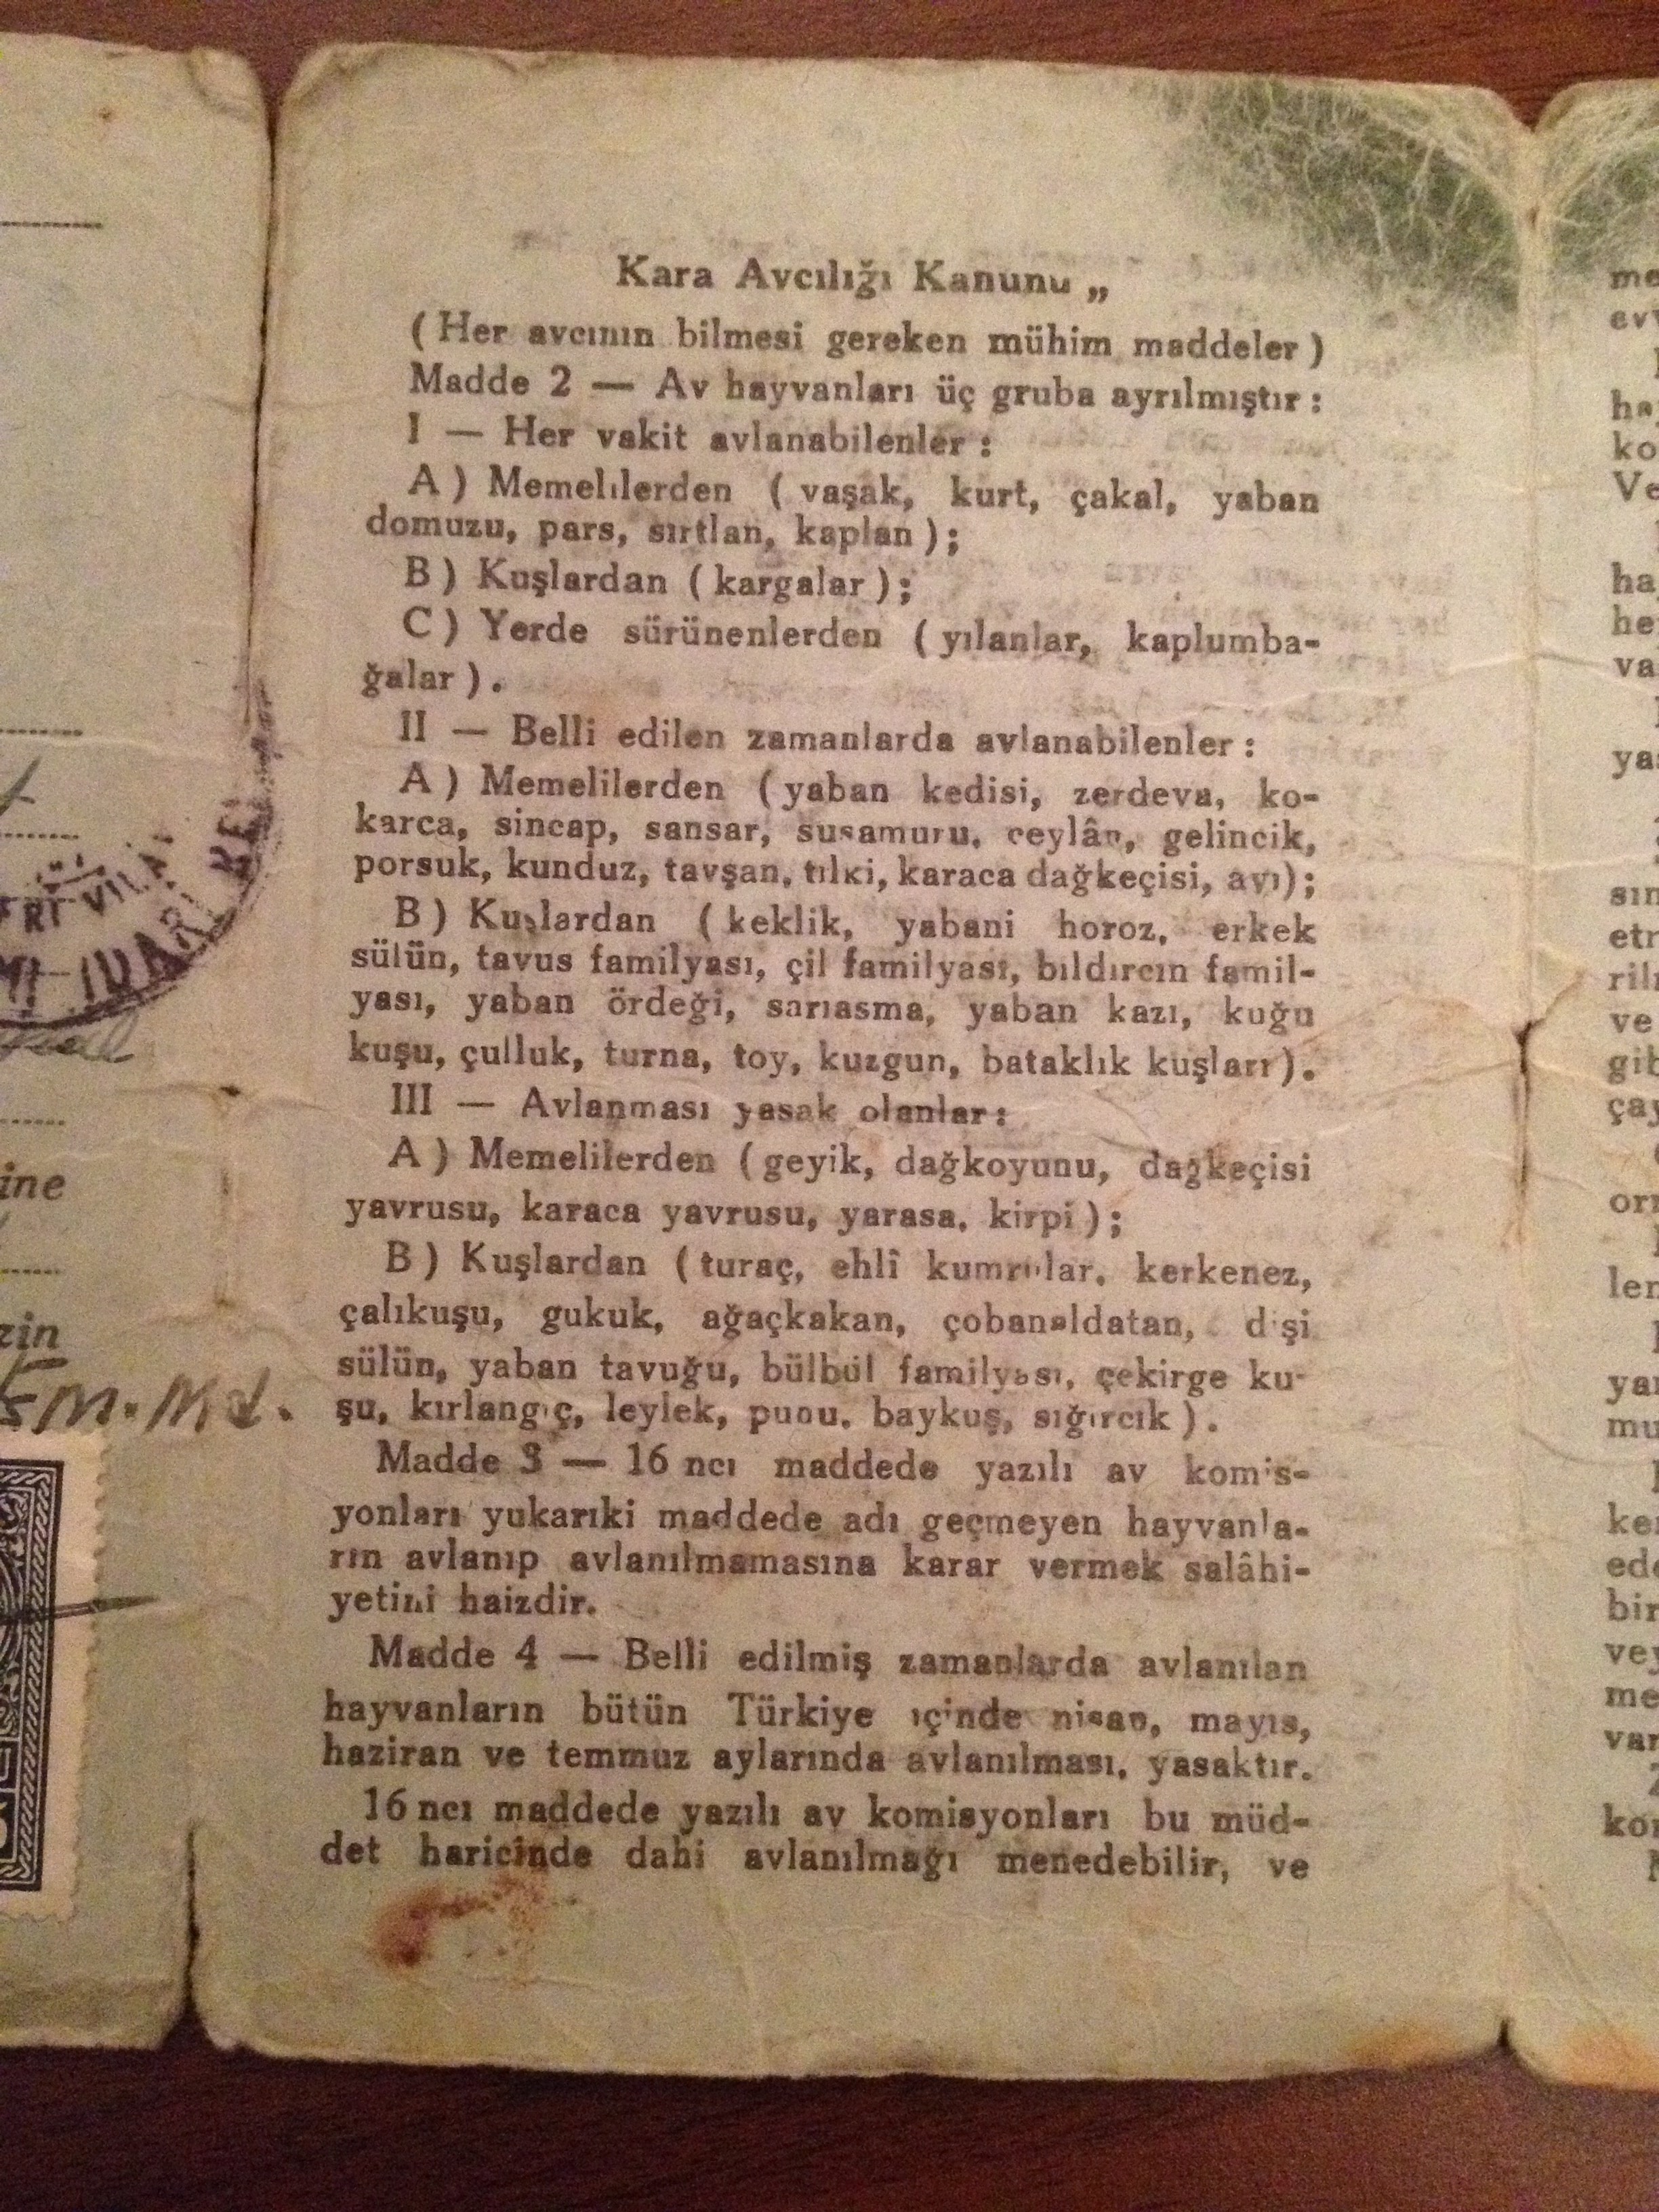 Kara Avcılığı Kanunu „
( Her avcının bilmesi gereken mühim maddeler )
Madde 2 — Av hayvanları üç gruba ayrılmıştır :
I — Her vakit avlanabilenler :
A ) Memelilerden ( vaşak, kurt, çakal, yaban
domuzu, pars, sırtlan, kaplan ) ;
B ) Kuşlardan ( kargalar ) ;
C ) Yerde sürünenlerden ( yılanlar, kaplumba-
ğalar ) .
II — Belli edilen zamanlarda avlanabilenler :
A ) Memelilerden ( yaban kedisi, zerdeva, ko-
karca, sincap, sansar, susamuru, ceylân, gelincik,
porsuk, kunduz, tavşan, tilki, karaca dağkeçisi, ayı) ;
B ) Kuşlardan ( keklik, yabani horoz, erkek
sülün, tavus familyası, çil familyası, bıldırcın famil-
yası, yaban ördeği, sarıasma, yaban kazı, kuğu
kuşu, çulluk, turna, toy, kuzgun, bataklık kuşları ) .
III — Avlanması yasak olanlar :
A ) Memelilerden ( geyik, dağkoyunu, dağkeçisi
yavrusu, karaca yavrusu, yarasa, kirpi ) ;
B ) Kuşlardan ( turaç, ehlî kumrular, kerkenez,
çalıkuşu, gukuk, ağaçkakan, çobanaldatan, dişi
sülün, yaban tavuğu, bülbül familyası, çekirge ku-
şu, kırlangıç, leylek, puhu, baykuş, sığırcık ) .
Madde 3 — 16 ncı maddede yazılı av komis-
yonları yukarıki maddede adı geçmeyen hayvanla-
rın avlanıp avlanılmamasına karar vermek salâhi-
yetini haizdir.
Madde 4 — Belli edilmiş zamanlarda avlanılan
hayvanların bütün Türkiye içinde nisan, mayıs,
haziran ve temmuz aylarında avlanılması, yasaktır.
16 ncı maddede yazılı av komisyonları bu müd-
det haricinde dahi avlanılmağı menedebilir, ve